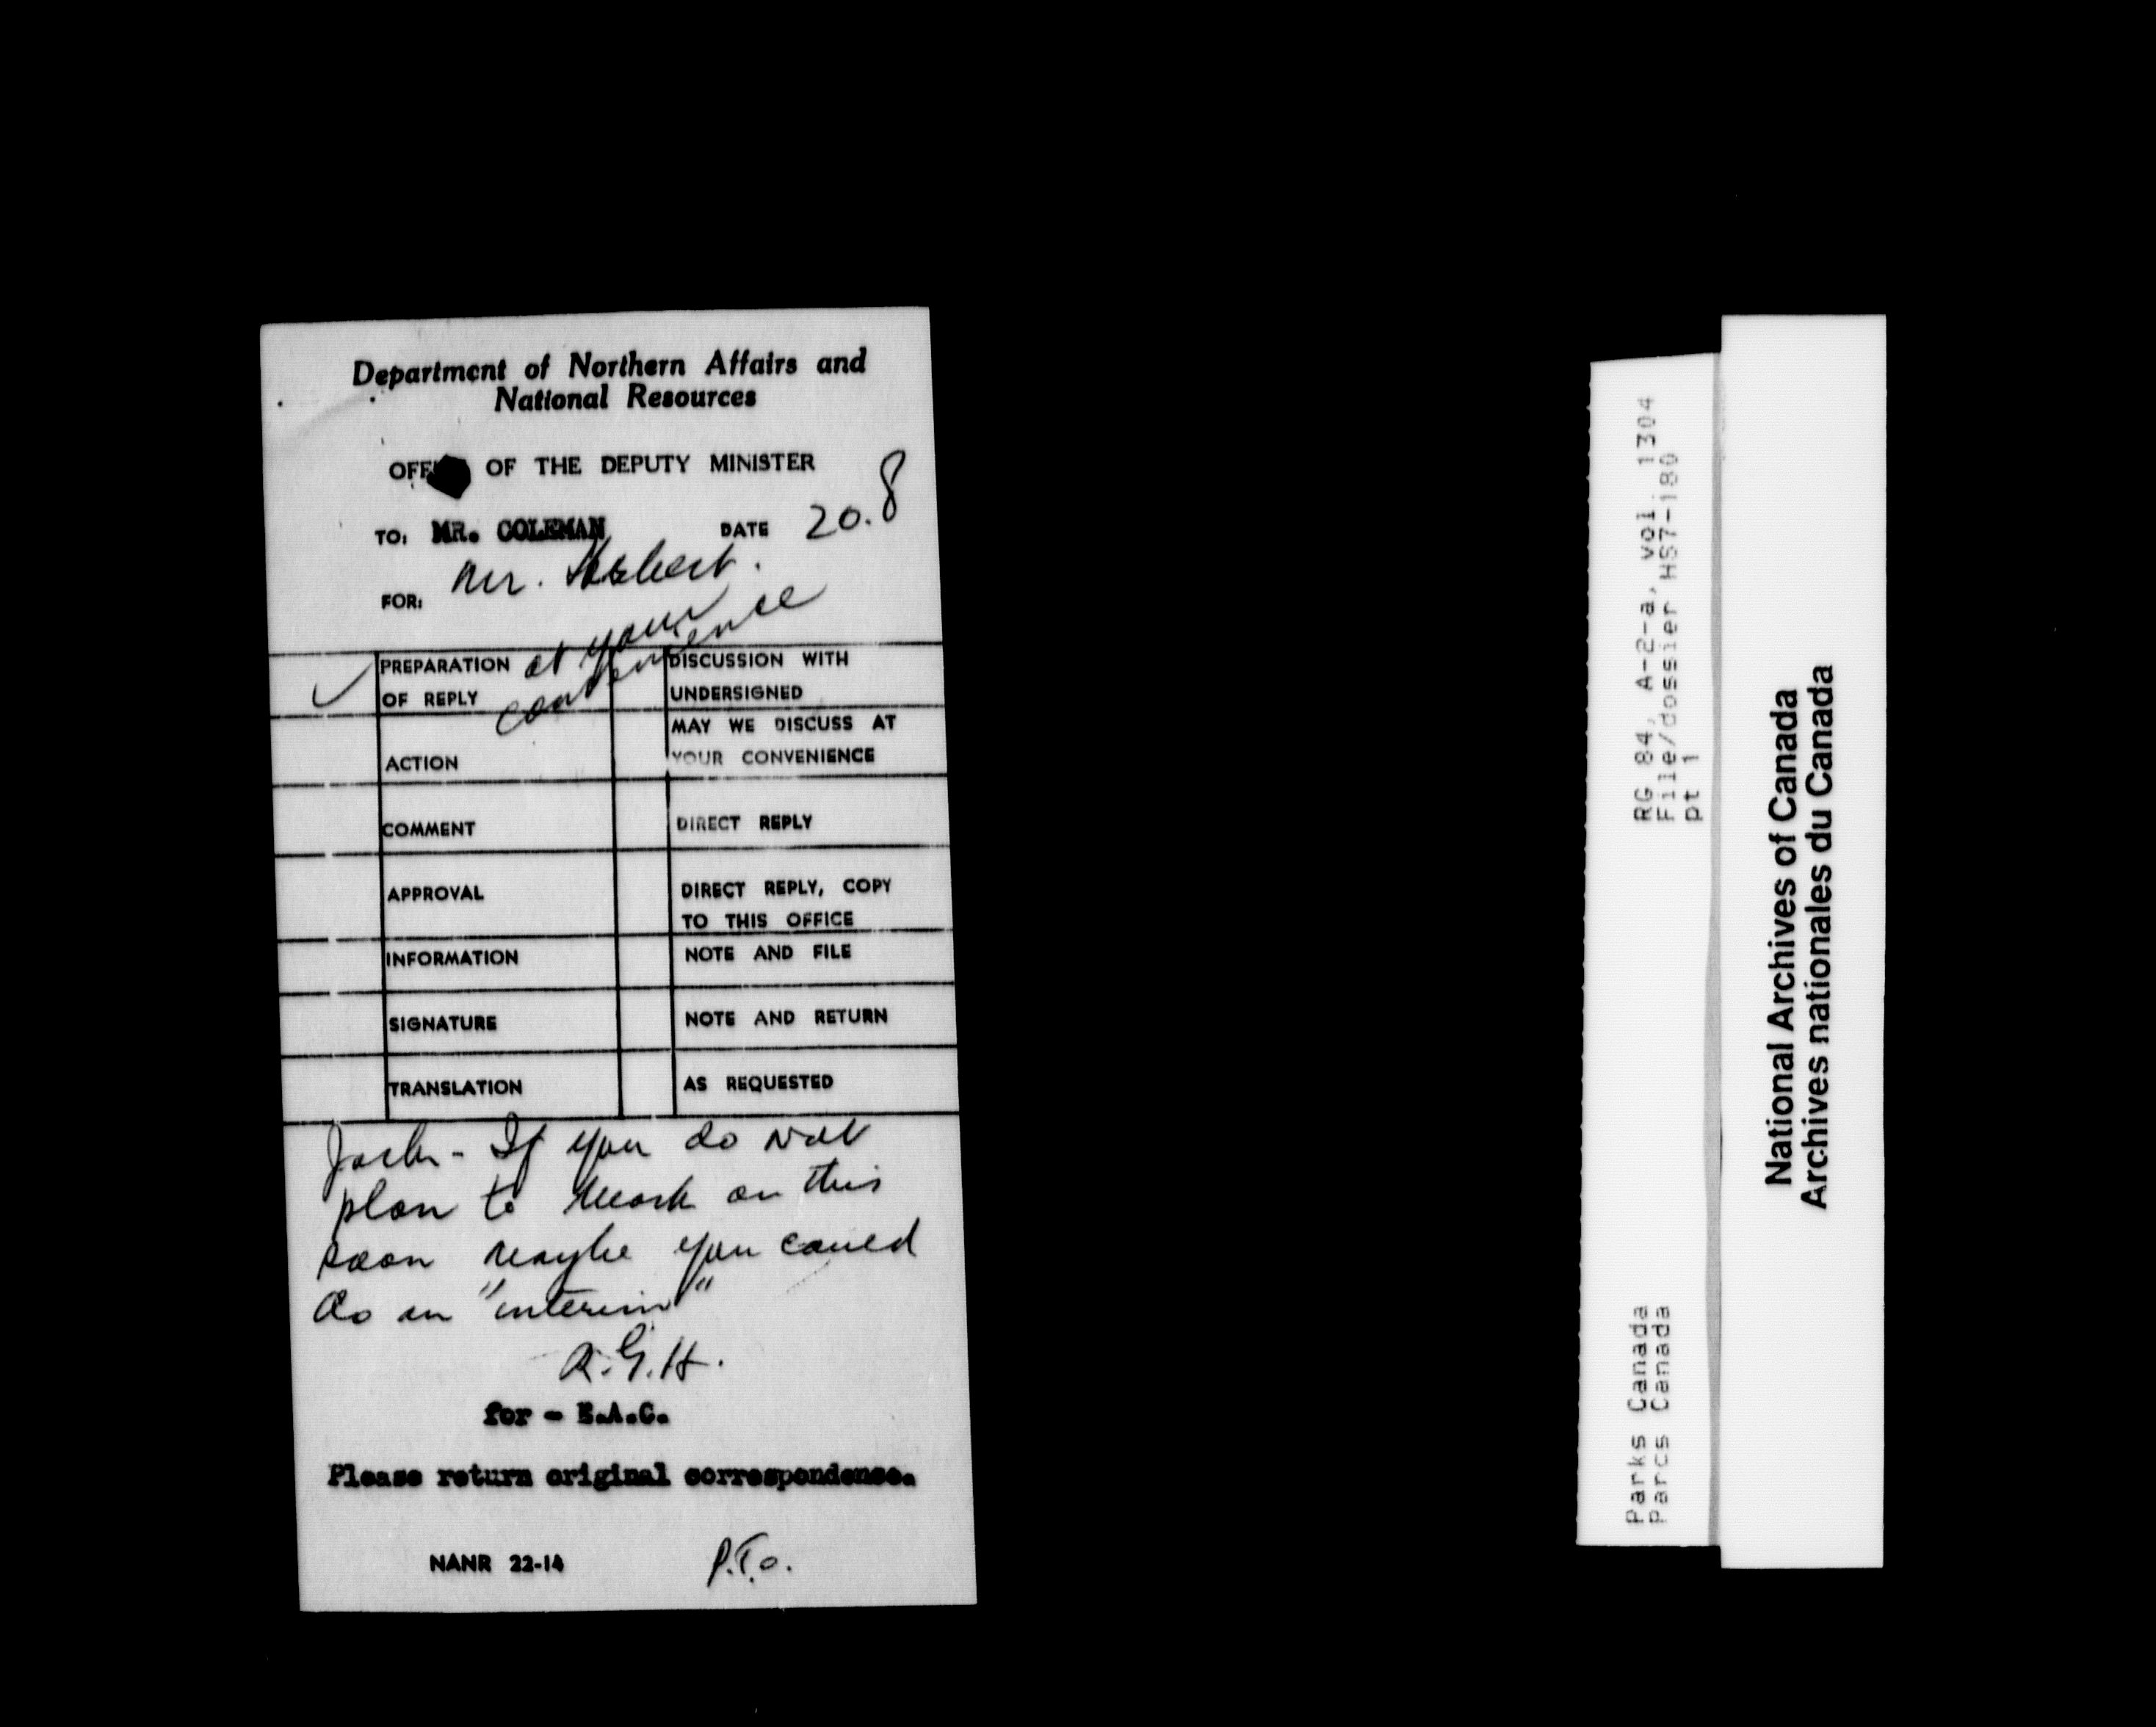 Department of Northern Affairs and
National Resources
OFF OF THE DEPUTY MINISTER
TO: MR. COLEMAN DATE 20.8
Mr. Hebert.
FOR:
at your
convenience
✓ PREPARATION
OF REPLY
DISCUSSION WITH
UNDERSIGNED
ACTION
MAY WE DISCUSS AT
YOUR CONVENIENCE
COMMENT
DIRECT REPLY
APPROVAL
DIRECT REPLY, COPY
TO THIS OFFICE
INFORMATION
NOTE AND FILE
SIGNATURE
NOTE AND RETURN
TRANSLATION
AS REQUESTED
If you do not
plan to work on this
soon maybe you could
do an "interim"
R.G.H.
for - E.A.C.
Please return original correspondence.
NANR 22-14 P.T.O.
RG 84, A-2-a, vol. 1304
File/dossier HS7-180
pt 1
Parks Canada
Parcs Canada
National Archives of Canada
Archives nationales du Canada